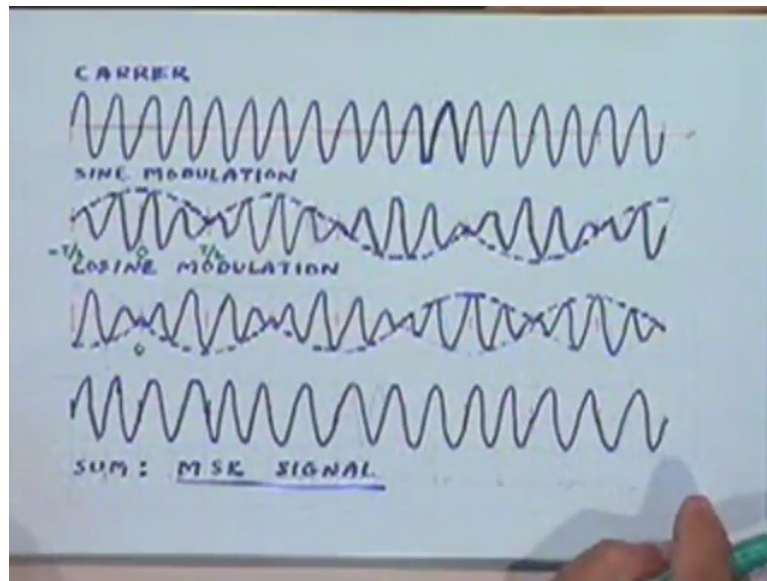 CARRIER
SINE MODULATION
-T/2 0 T/2
COSINE MODULATION
0
SUM: MSK SIGNAL